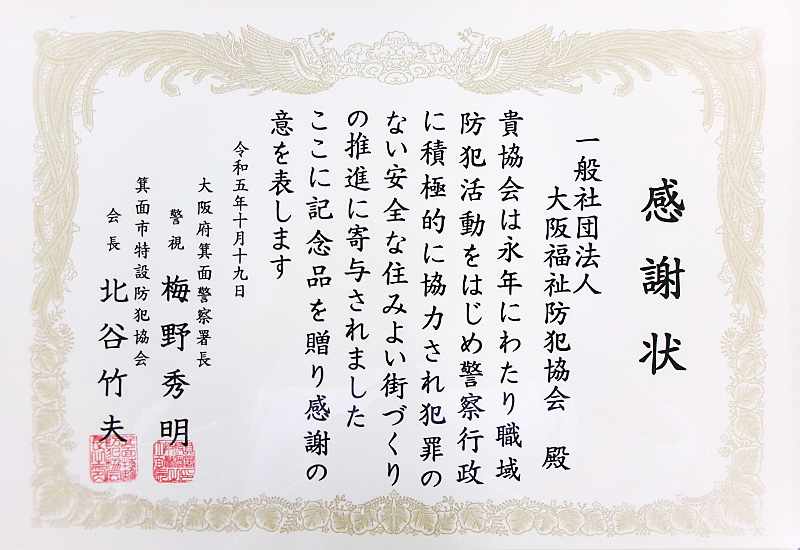 感謝状
一般社団法人
大阪福祉防犯協会 殿
貴協会は永年にわたり職域
防犯活動をはじめ警察行政
に積極的に協力され犯罪の
ない安全な住みよい街づくり
の推進に寄与されました
ここに記念品を贈り感謝の
意を表します
令和五年十月十九日
大阪府箕面警察署長
警視 梅野秀明
箕面市特設防犯協会
会長 北谷竹夫